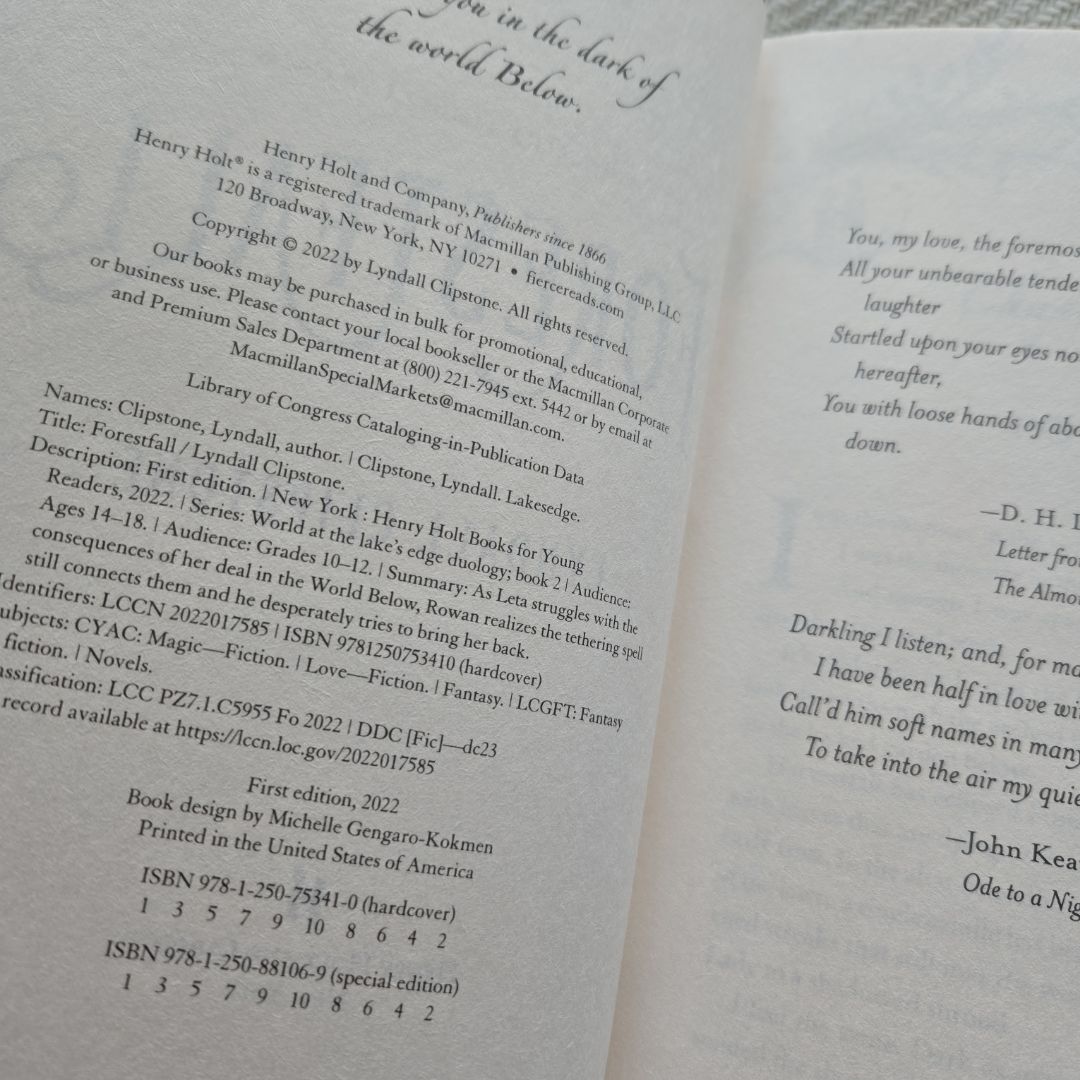 you in the dark of
the world Below.
Henry Holt and Company, Publishers since 1866
Henry Holt® is a registered trademark of Macmillan Publishing Group, LLC
120 Broadway, New York, NY 10271 • fiercereads.com
Copyright © 2022 by Lyndall Clipstone. All rights reserved.
Our books may be purchased in bulk for promotional, educational,
or business use. Please contact your local bookseller or the Macmillan Corporate
and Premium Sales Department at (800) 221-7945 ext. 5442 or by email at
MacmillanSpecialMarkets@macmillan.com.
Library of Congress Cataloging-in-Publication Data
Names: Clipstone, Lyndall, author. | Clipstone, Lyndall. Lakesedge.
Title: Forestfall / Lyndall Clipstone.
Description: First edition. | New York : Henry Holt Books for Young
Readers, 2022. | Series: World at the lake's edge duology; book 2 | Audience:
Ages 14–18. | Audience: Grades 10–12. | Summary: As Leta struggles with the
consequences of her deal in the World Below, Rowan realizes the tethering spell
still connects them and he desperately tries to bring her back.
Identifiers: LCCN 2022017585 | ISBN 9781250753410 (hardcover)
ubjects: CYAC: Magic—Fiction. | Love—Fiction. | Fantasy. | LCGFT: Fantasy
fiction. | Novels.
assification: LCC PZ7.1.C5955 Fo 2022 | DDC [Fic]—dc23
record available at https://lccn.loc.gov/2022017585
First edition, 2022
Book design by Michelle Gengaro-Kokmen
Printed in the United States of America
ISBN 978-1-250-75341-0 (hardcover)
1 3 5 7 9 10 8 6 4 2
ISBN 978-1-250-88106-9 (special edition)
1 3 5 7 9 10 8 6 4 2
You, my love, the foremos
All your unbearable tende
laughter
Startled upon your eyes no
hereafter,
You with loose hands of abo
down.
—D. H. L
Letter fro
The Almo
Darkling I listen; and, for ma
I have been half in love wi
Call'd him soft names in many
To take into the air my quie
—John Kea
Ode to a Nig